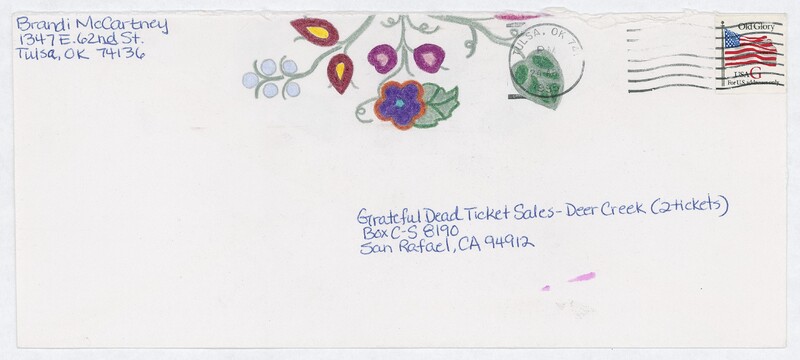 Brandi McCartney
1347 E. 62nd St.
Tulsa, OK 74136
TULSA, OK 74
PM
Old Glory
USA G
For U.S. addresses only
Grateful Dead Ticket Sales - Deer Creek (2 tickets)
Box C-S 8190
San Rafael, CA 94912